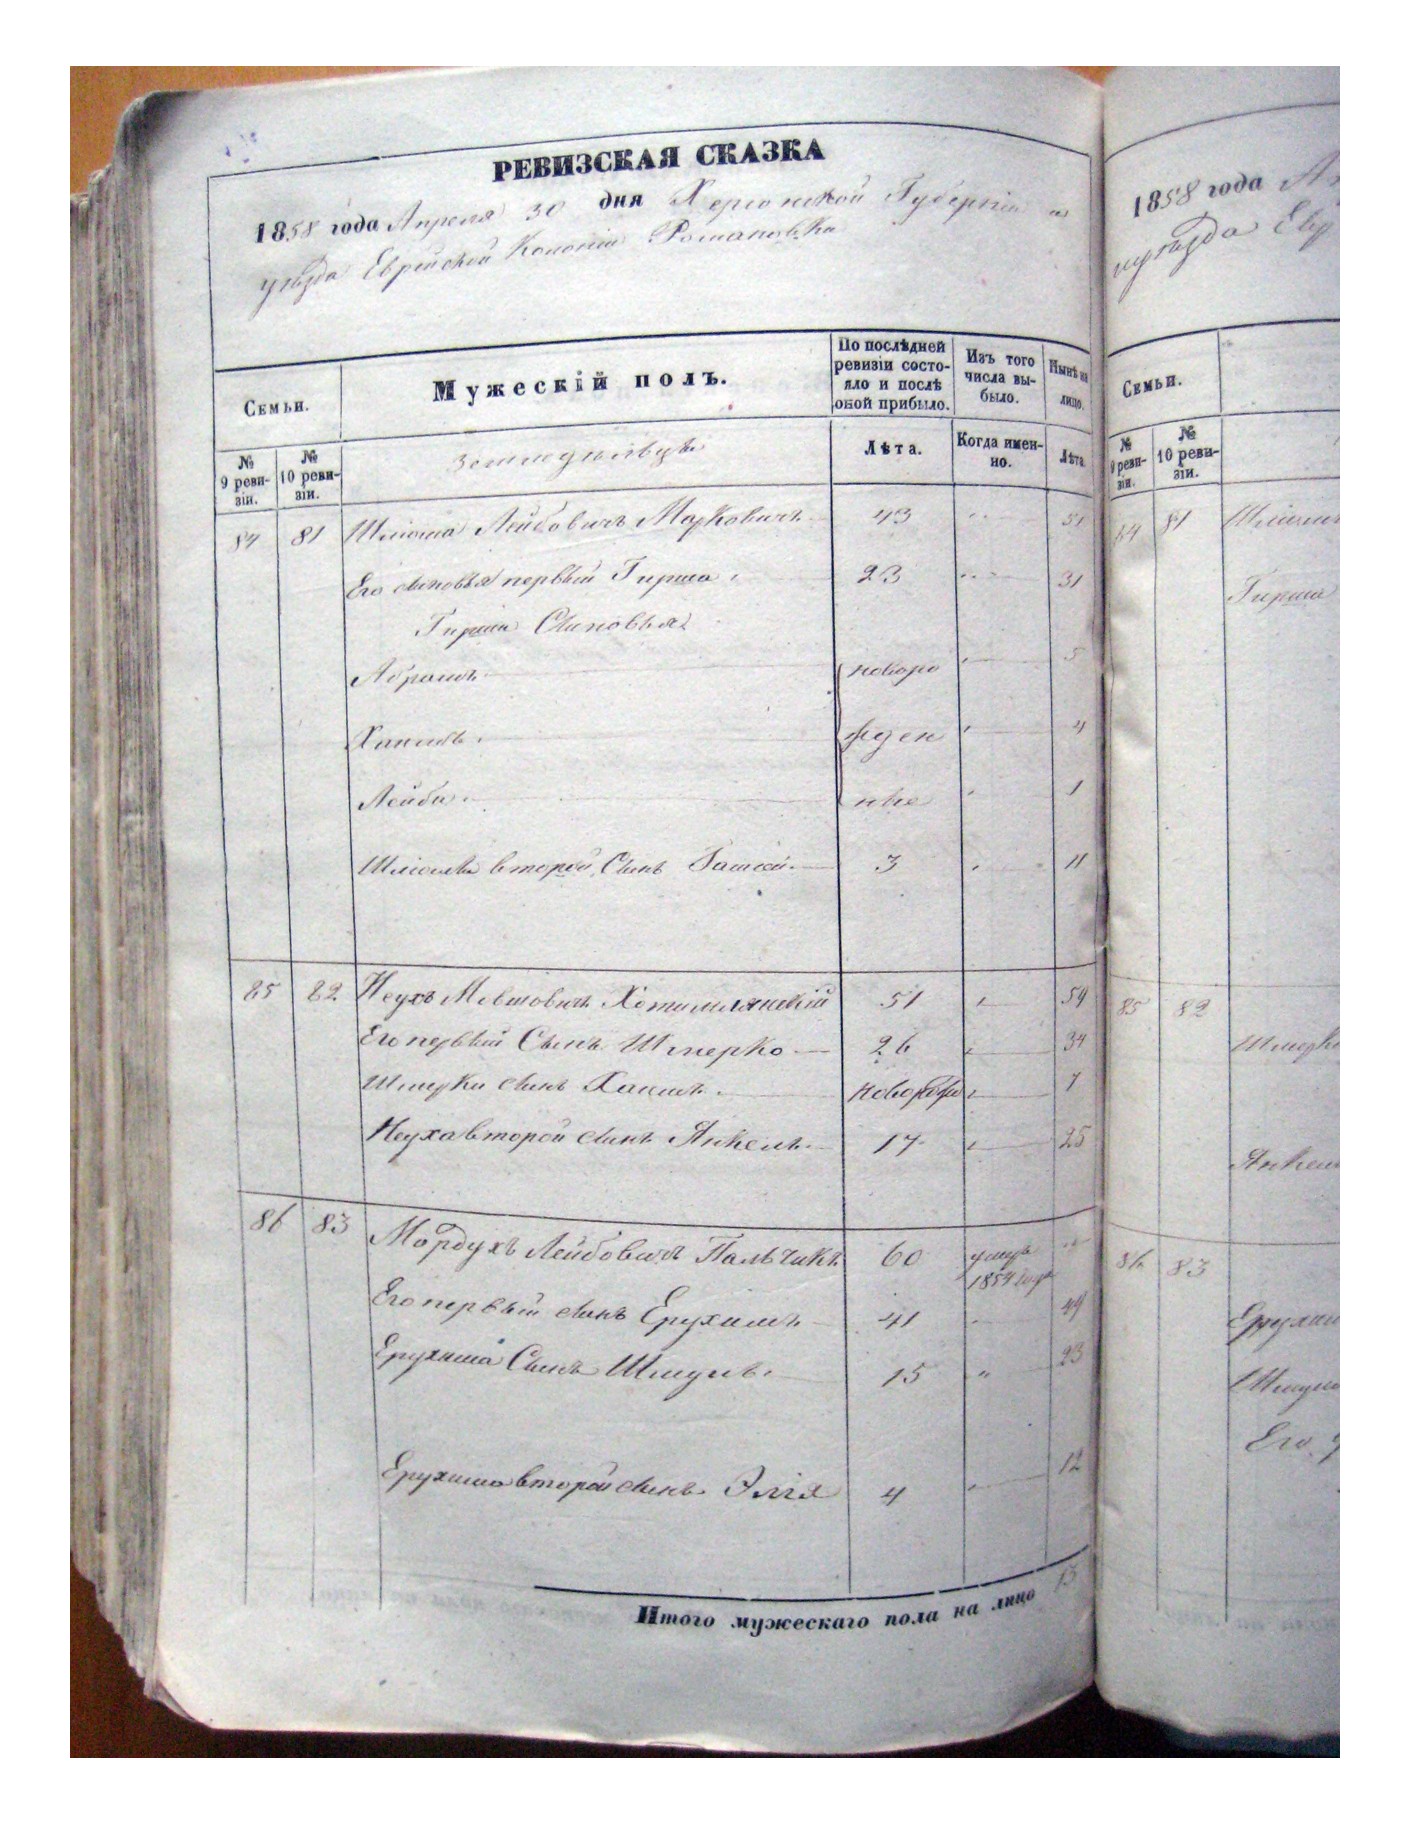 РЕВИЗСКАЯ СКАЗКА
1858 года Апреля 30 дня Херсонской Губерніи и
уѣзда Еврейской Колоніи Романовки
Семьи.
Мужескій полъ.
По послѣдней ревизіи состояло и послѣ оной прибыло.
Изъ того числа выбыло.
Нынѣ на лицо.
№ 9 ревизіи.
№ 10 ревизіи.
Лѣта.
Когда именно.
Лѣта
84 81 Шліома Лейбовичъ Марковичъ 43 51
Его сыновья первый Гирша 23 31
Гирши Сыновья
Абрамъ новоро 5
Хаимъ жден 4
Лейба ные 1
Шліомы второй Сынъ 3 11
85 82 Неухъ Мовшовичъ 51 59
Его первый Сынъ Шмерко 26 34
Шмерки сынъ Хаимъ новорож 7
Неуха второй сынъ Янкель 17 25
86 83 Мордухъ Лейбовичъ Пальчикъ 60 умеръ
1854 года
Его первый сынъ Ерухимъ 41 49
Ерухима Сынъ Шмуль 15 23
Ерухима второй сынъ Элія 4 12
Итого мужескаго пола на лицо 13
1858 года
уѣзда
Семьи.
№ 9 ревизіи.
№ 10 ревизіи.
84 81
Гирши
85 82
86 83
Его